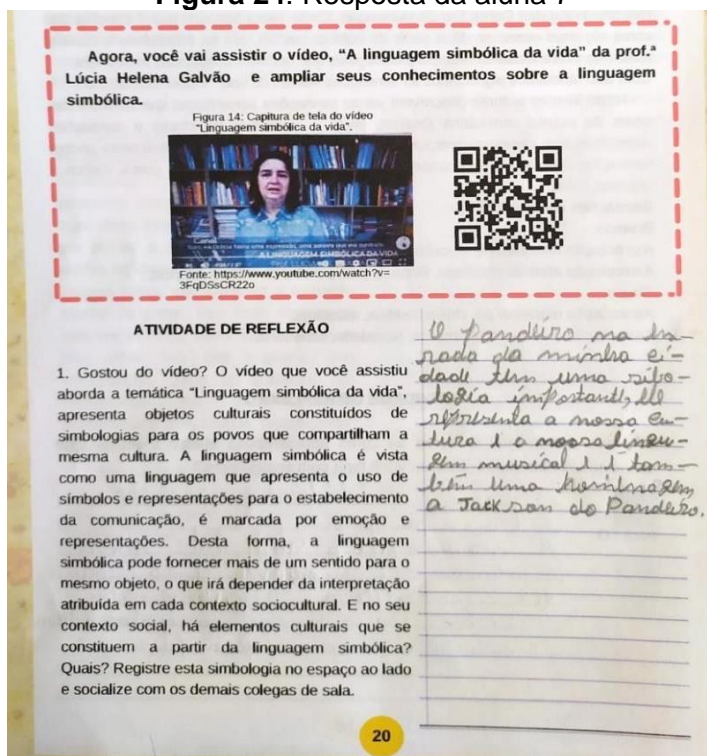 Figura 24: Resposta da aluna 7
Agora, você vai assistir o vídeo, “A linguagem simbólica da vida” da prof.ª
Lúcia Helena Galvão e ampliar seus conhecimentos sobre a linguagem
simbólica.
Figura 14: Capitura de tela do vídeo
"Linguagem simbólica da vida".
A LINGUAGEM SIMBÓLICA DA VIDA
Fonte: https://www.youtube.com/watch?v=
3FqDSsCR22o
ATIVIDADE DE REFLEXÃO
1. Gostou do vídeo? O vídeo que você assistiu
aborda a temática “Linguagem simbólica da vida”,
apresenta objetos culturais constituídos de
simbologias para os povos que compartilham a
mesma cultura. A linguagem simbólica é vista
como uma linguagem que apresenta o uso de
símbolos e representações para o estabelecimento
da comunicação, é marcada por emoção e
representações. Desta forma, a linguagem
simbólica pode fornecer mais de um sentido para o
mesmo objeto, o que irá depender da interpretação
atribuída em cada contexto sociocultural. E no seu
contexto social, há elementos culturais que se
constituem a partir da linguagem simbólica?
Quais? Registre esta simbologia no espaço ao lado
e socialize com os demais colegas de sala.
O pandeiro na en-
trada da minha ci-
dade tem uma sibo-
logia importante, ele
representa a nossa cu-
tura e a nossa lingua-
gem musical e é tam-
bém uma homenagem
a Jackson do Pandeiro.
20